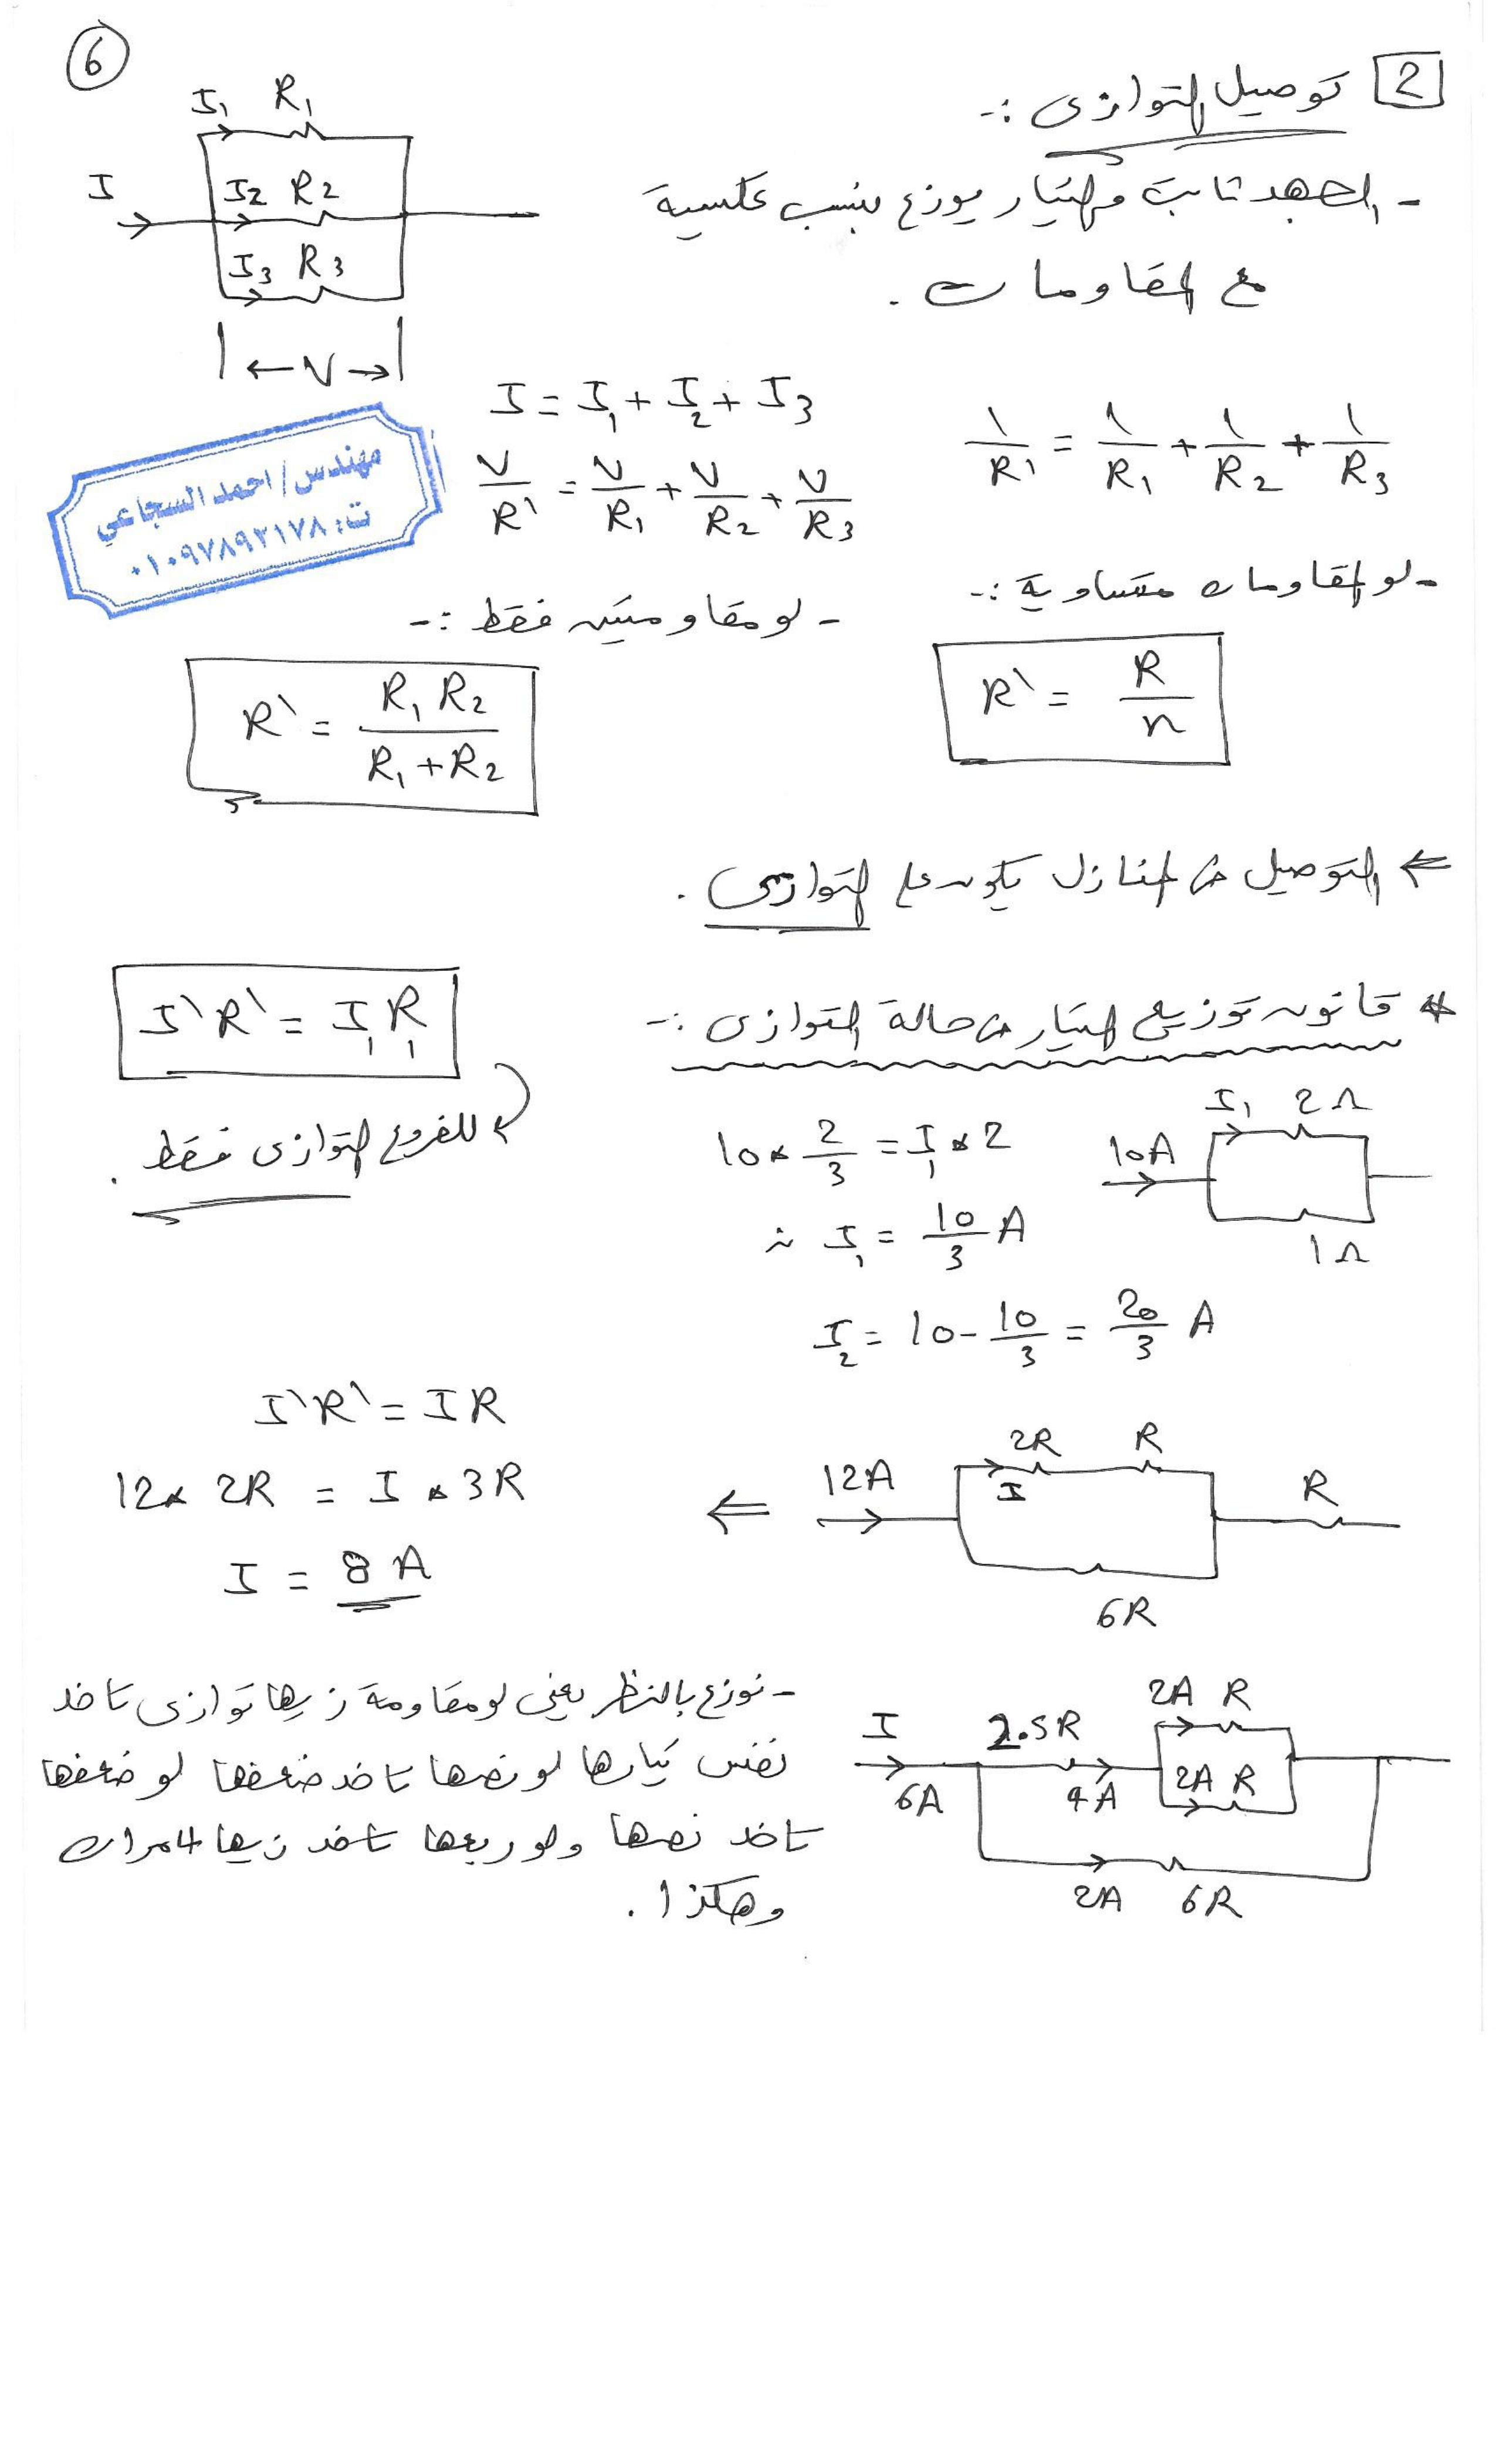 6
2 توصيل التوازى :-
I₁ R₁
I I₂ R₂
I₃ R₃
V
- الجهد ثابت والتيار يوزع بنسب عكسية
مع المقاومات .
I = I₁ + I₂ + I₃
V/R\ = V/R₁ + V/R₂ + V/R₃
1/R\ = 1/R₁ + 1/R₂ + 1/R₃
مهندس/ احمد السجاعي
ت: ٠١٠٩٧٨٩٢١٧٨
- لو المقاومات متساوية :-
R\ = R/n
- لو مقاومتين فقط :-
R\ = R₁ R₂ / R₁ + R₂
⇐ التوصيل فى المنازل يكون على التوازى .
* قانون توزيع التيار فى حالة التوازى :-
I\ R\ = I₁ R₁
للفروع التوازى فقط .
10A I₁ 2Ω
1Ω
10 × 2/3 = I₁ × 2
∴ I₁ = 10/3 A
I₂ = 10 - 10/3 = 20/3 A
12A 2R R R
I
6R
⇐
I\R\ = I R
12 × 2R = I × 3R
I = 8 A
I 2.5R 2A R
6A 4A 2A R
2A 6R
- نوزع بالنظر يعنى لو مقاومة زيها توازى تاخد
نفس تيارها لو نصها تاخد ضعفها لو ضعفها
تاخد نصها ولو ربعها تاخد زيها 4 مرات
وهكذا .